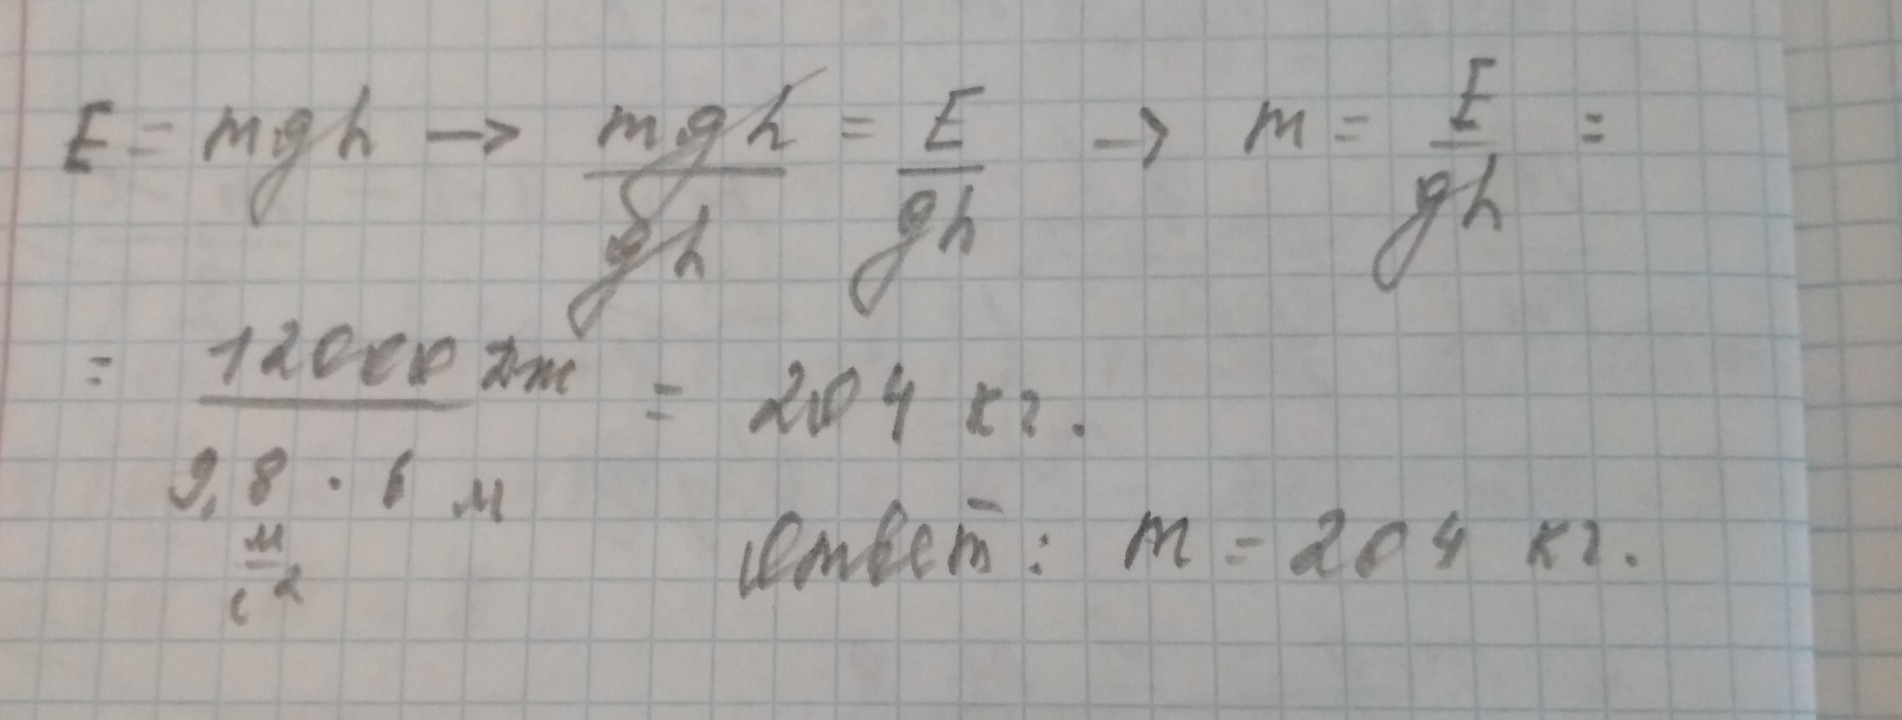 E = mgh → mgh/gh = E/gh → m = E/gh =
= 12000 Дж / 9,8 м/с² · 6 м = 204 кг.
Ответ: m = 204 кг.